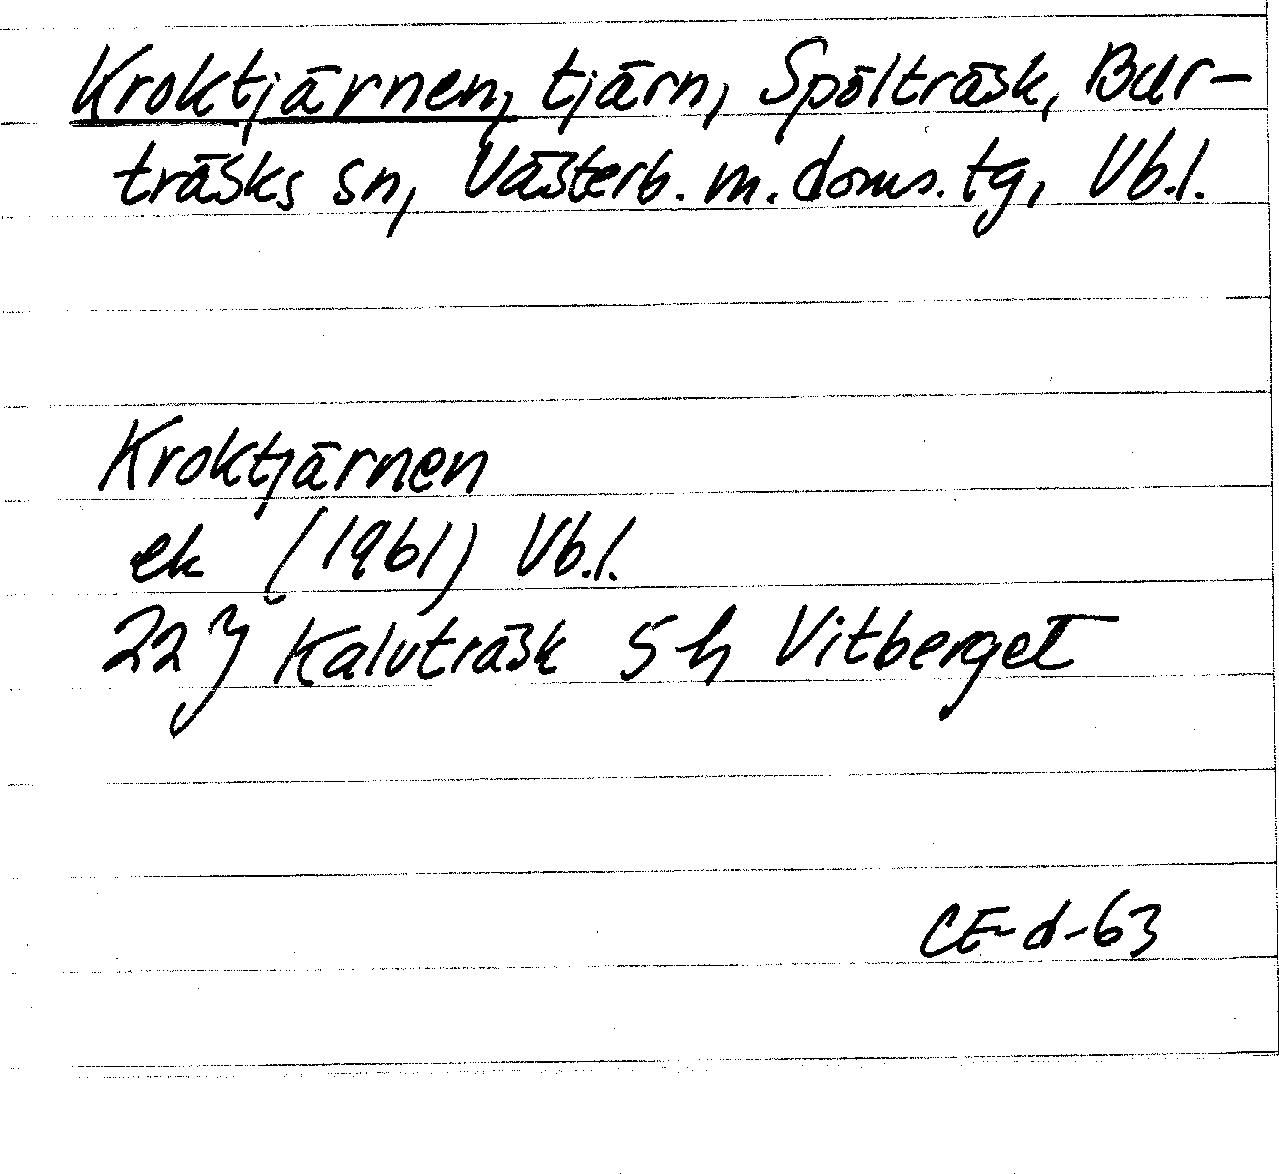 Kroktjärnen, tjärn, Spölträsk, Bur-
träsks sn, Västerb. m. doms. tg, Vb.l.
Kroktjärnen
ek (1961) Vb.l.
22 J Kalvträsk 5 h Vitberget
CE-d-63